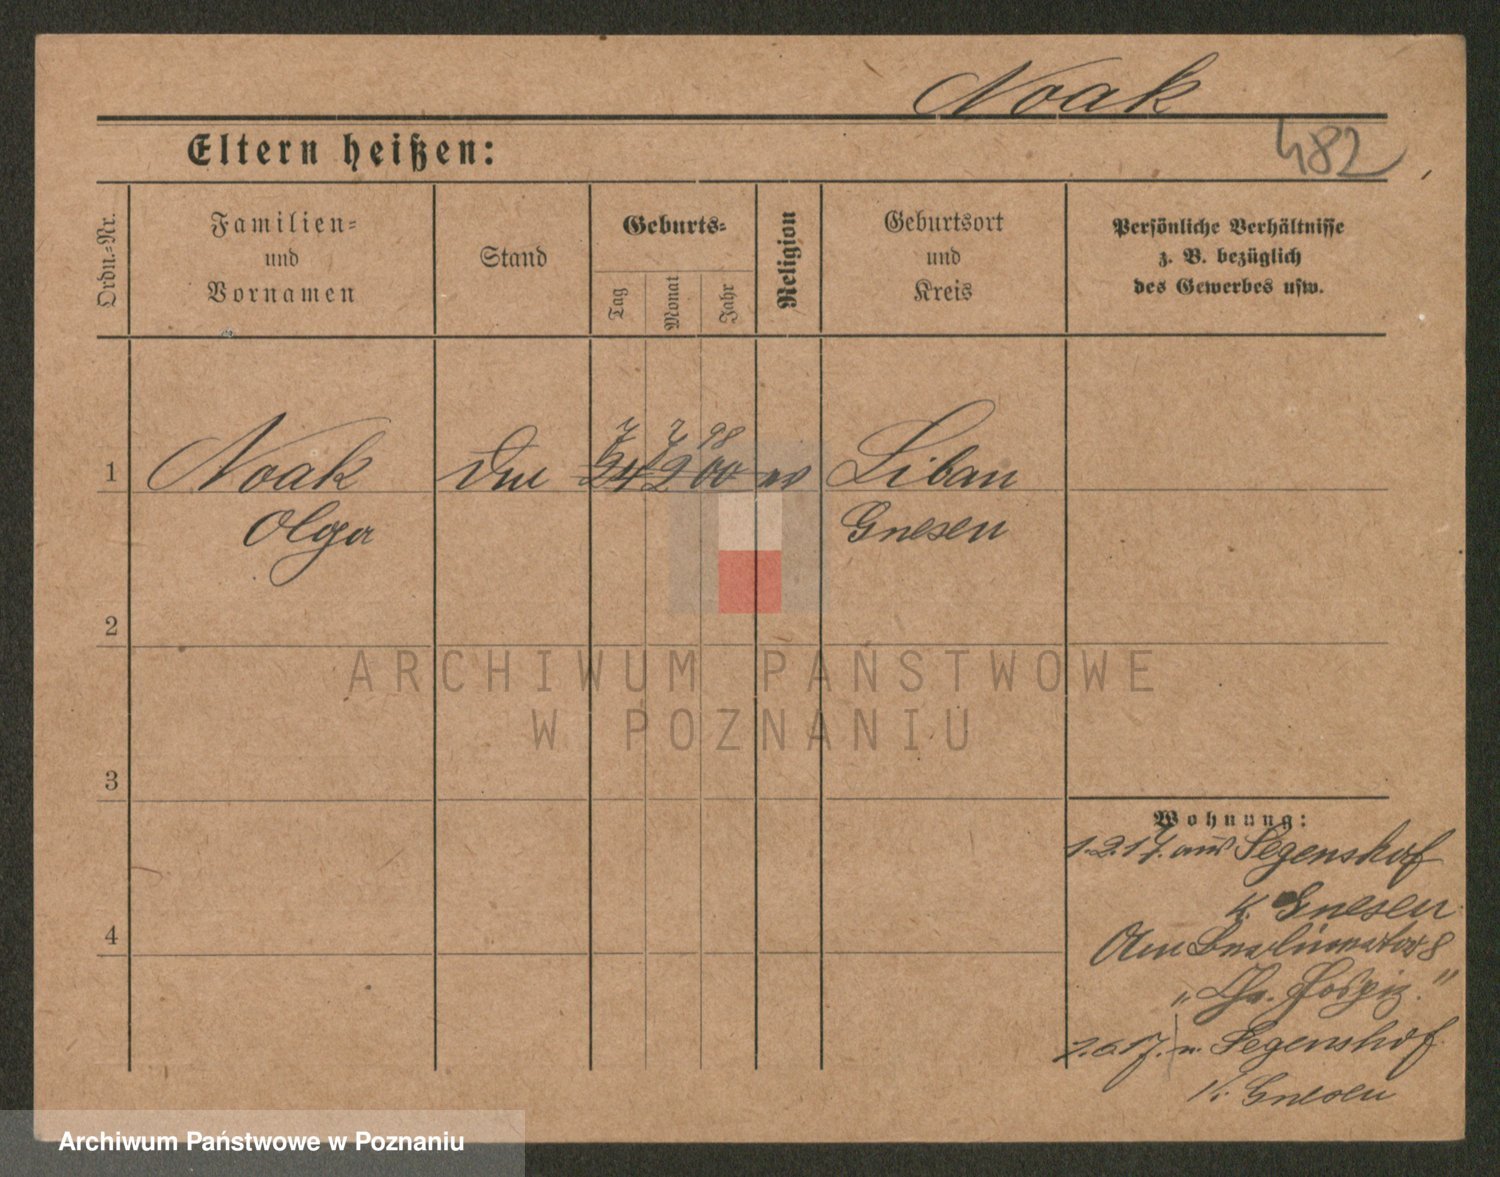 Noak
482
Eltern heißen:
Ordn.=Nr.
Familien=
und
Vornamen
Stand
Geburts=
Tag
Monat
Jahr
Religion
Geburtsort
und
Kreis
Persönliche Verhältnisse
z. B. bezüglich
des Gewerbes usw.
7 2 98
1 Noak 24 2 00 Liban
Olga Gnesen
2
3
4
Wohnung:
1.2.17. aus Segenshof
K. Gnesen
Am Berlinertor 8
"Chr. Hospiz."
2.6.17. n. Segenshof
K. Gnesen
ARCHIWUM PAŃSTWOWE
W POZNANIU
Archiwum Państwowe w Poznaniu